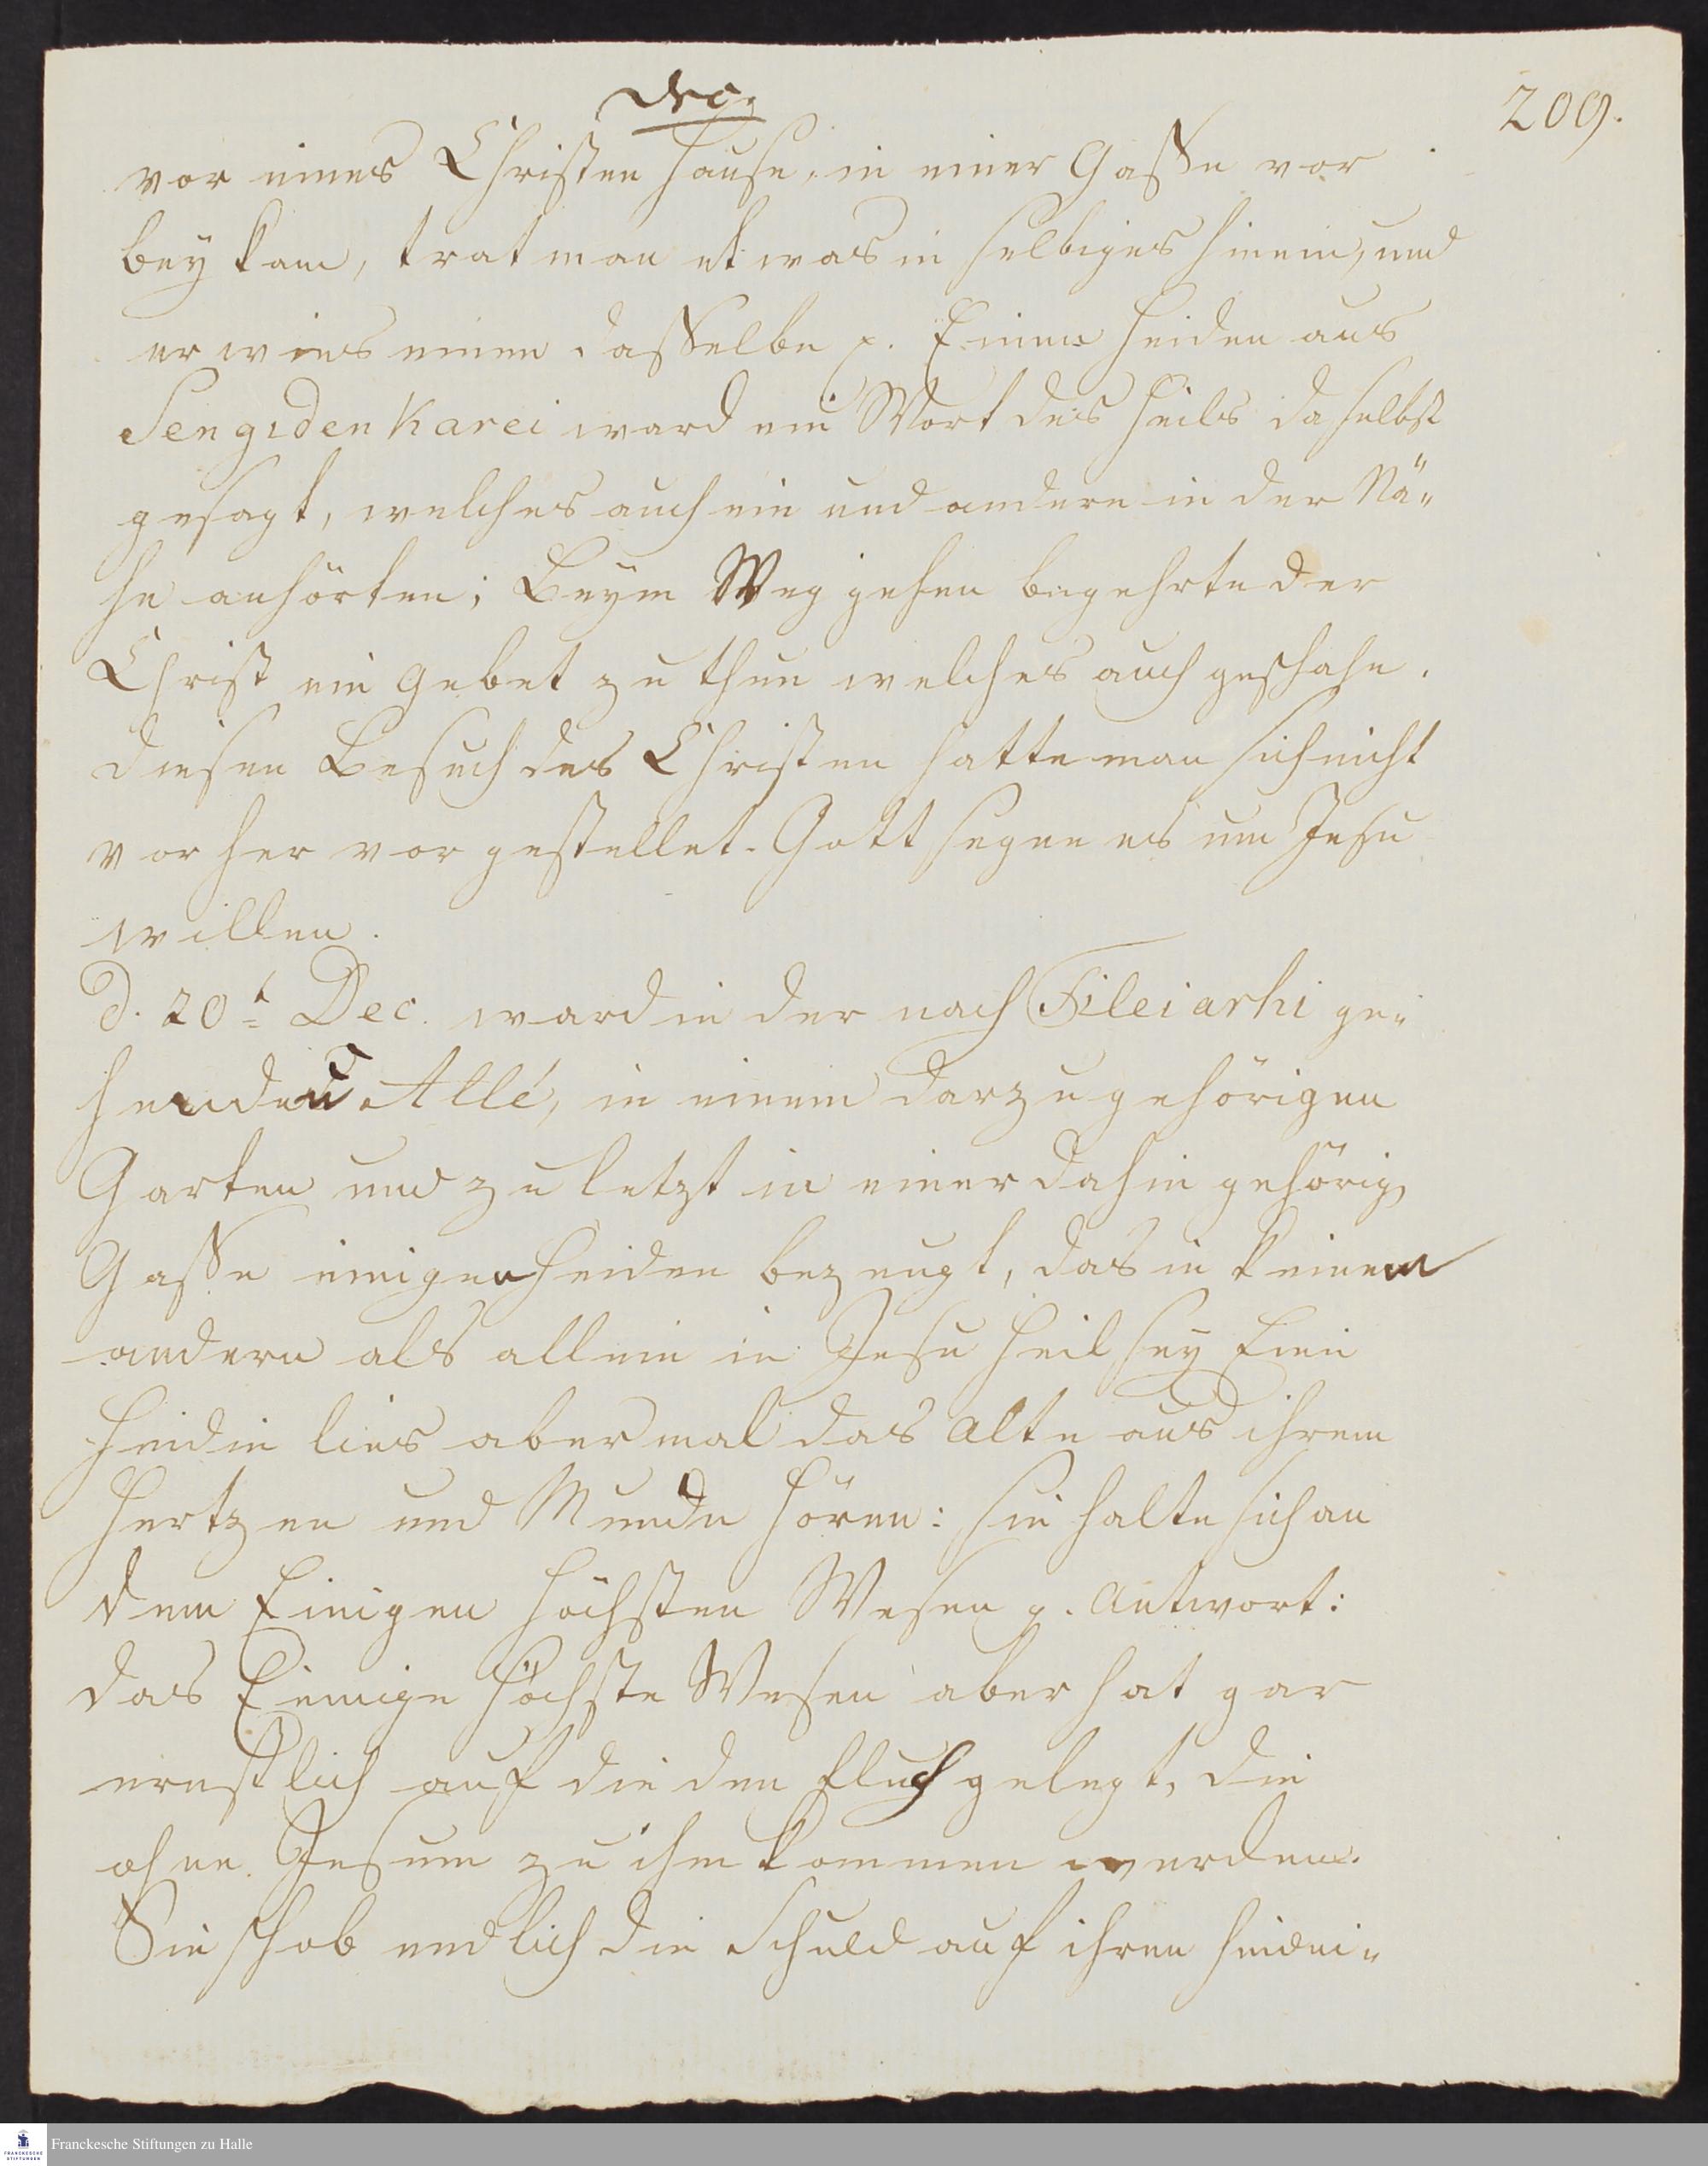 Dec.
209.
vor eines Christen Hause, in einer Gasse vor
bey kam, trat man etwas in selbiges hinein, und
erwies einem dasselbe p. Einem Heiden aus
Sengidenkarei ward ein Wort des Heils daselbst
gesagt, welches auch ein und andere in der Nä-
he anhörten; Beym Weg gehen begehrte der
Christ ein Gebet zu thun welches auch geschahe.
diesen Besuch des Christen hatte man sich nicht
vorher vor gestellet. Gott segne es um Jesu
willen.
d. 20t Dec. ward in der nach Tileiarhi ge-
henden Allé, in einem darzu gehörigen
Garten und zu letzt in einer dahin gehörig
Gasse einigen Heiden bezeugt, das in keinem
andern als allein in Jesu Heil sey Eine
Heidin lies abermal das Alte aus ihrem
Hertzen und Munde hören: sie halte sich an
dem Einigen höchsten Wesen p. Antwort:
das Einige höchste Wesen aber hat gar
ernstlich auf die den Fluch gelegt, die
ohne Jesum zu ihm kommen werden.
Sie schob endlich die Schuld auf ihren heidni-
Franckesche Stiftungen zu Halle